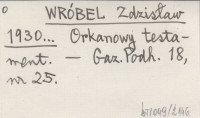 WRÓBEL Zdzisław
1930... Orkanowy testa-
ment. — Gaz. Podh. 18,
nr 25.